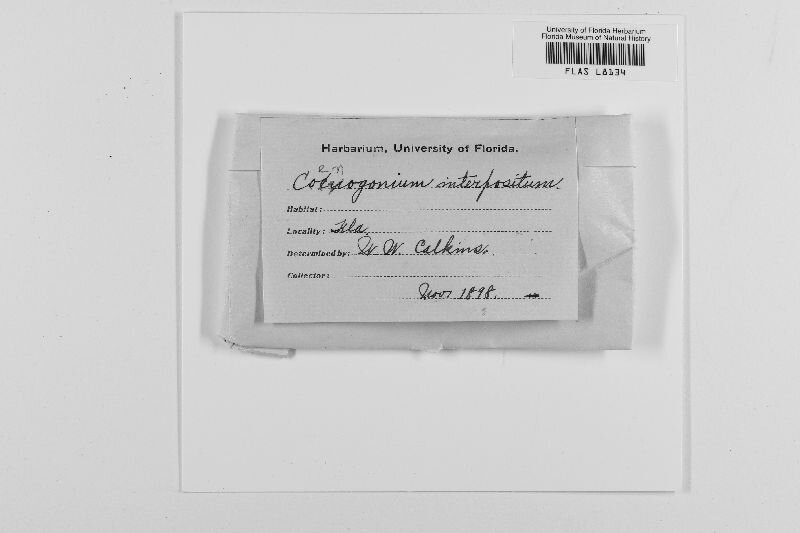 University of Florida Herbarium
Florida Museum of Natural History
FLAS L8134
Herbarium, University of Florida.
Coenogonium interpositum.
Habitat:
Locality: Fla.
Determined by: W. W. Calkins.
Collector:
Nov. 1898.